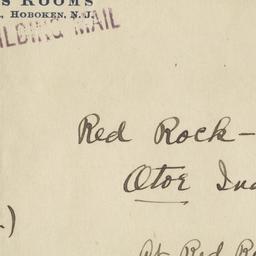 s Rooms
., Hoboken, N. J.
ILDING MAIL
Red Rock-
Otoe Ind
.)
At Red R